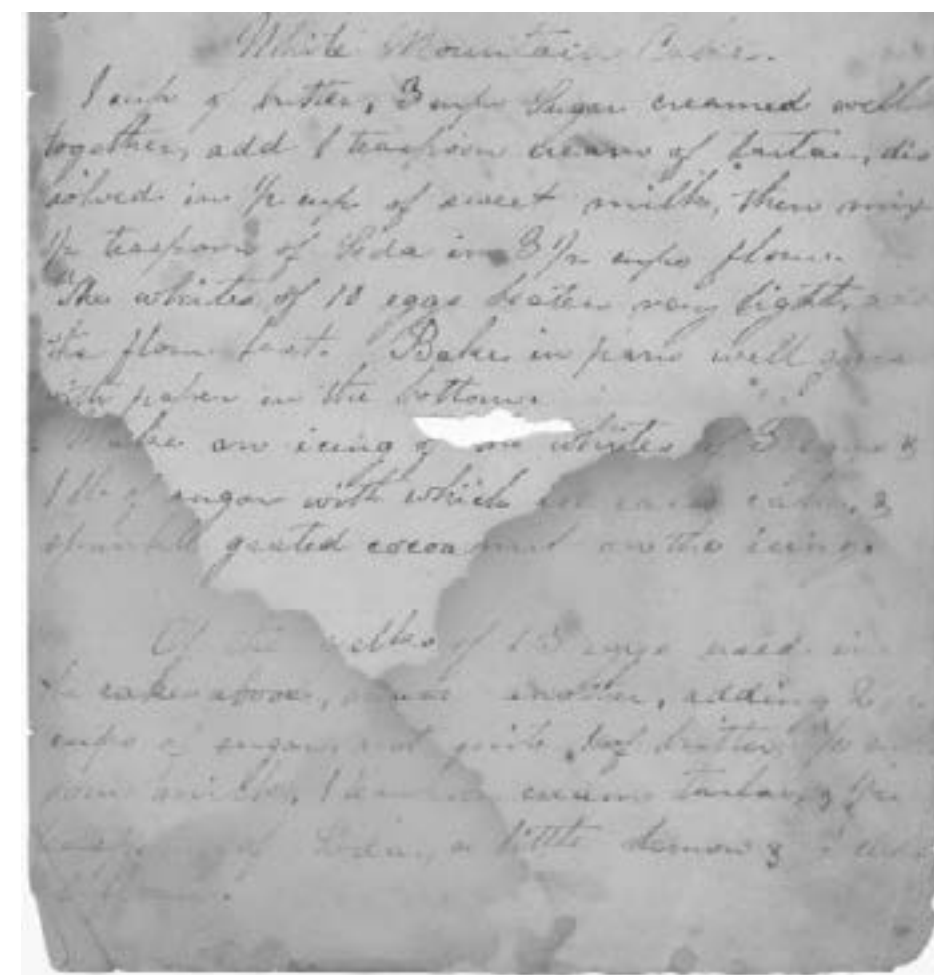 White Mountain Cake.
1 cup of butter, 3 cups Sugar creamed well
together, add 1 teaspoon cream of tartar, dis
solved in ½ cup of sweet milk, then mix
½ teaspoon of Soda in 3 ½ cups flour.
The whites of 10 eggs beaten very light,
the flour last. Bake in pans well
with paper in the bottom.
Make an icing of whites of 3 eggs &
1 lb of sugar with which cake, &
sprinkle grated cocoa nut on the icing.
Of the yolks of 13 eggs used in
the cake above, another, adding 2
cups of sugar, not quite 1 of butter, ½
sour milk, 1 cream tartar, & ½
of Soda, a little lemon &